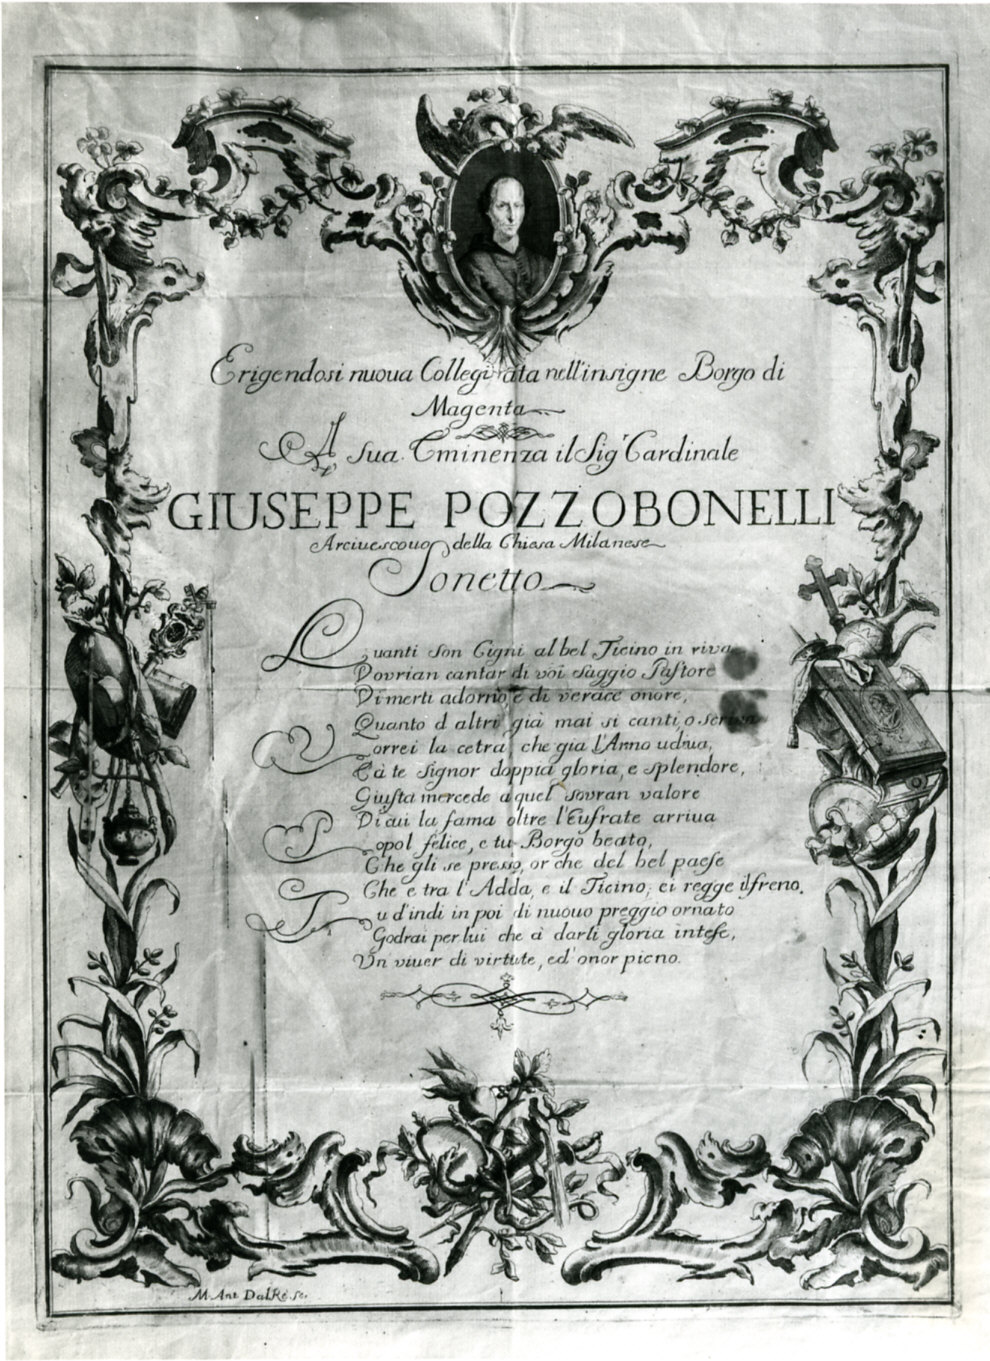 Erigendosi nuoua Collegiata nell'insigne Borgo di
Magenta
A sua Eminenza il Sigr Cardinale
GIUSEPPE POZZOBONELLI
Arciuescouo della Chiesa Milanese
Sonetto
Quanti son Cigni al bel Ticino in riva
Dovrian cantar di voi saggio Pastore
Di merti adorno, e di verace onore,
Quanto d altri già mai si canti, o scriva
Vorrei la cetra, che gia l'Arno udiua,
E à te Signor doppia gloria, e splendore,
Giusta mercede a quel sovran valore
Di cui la fama oltre l'Eufrate arriua
Popol felice, e tu Borgo beato,
Che gli se presso, or che del bel paese
Che e tra l'Adda, e il Ticino, ei regge il freno.
Tu d'indi in poi di nuouo preggio ornato
Godrai per lui che à darti gloria intese,
Un viuer di virtute, ed'onor pieno.
M. Ant. Dal Rè sc.